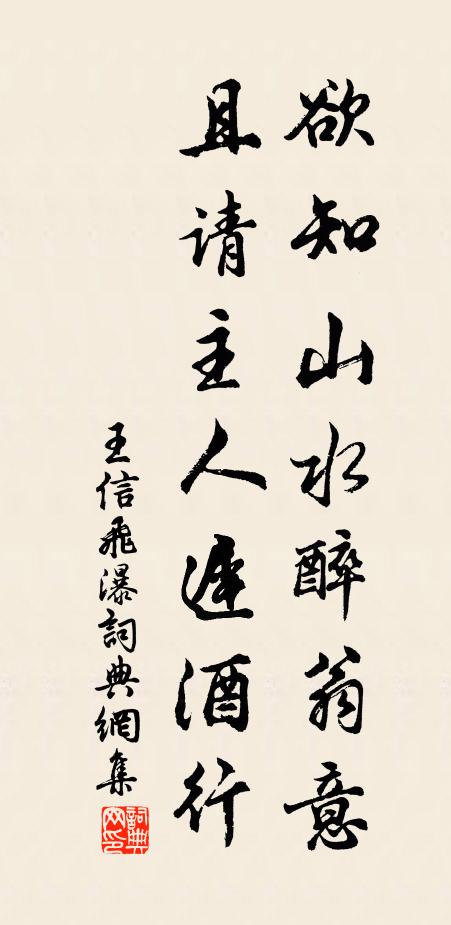 欲知山水醉翁意
且請主人遲酒行
王信飛瀑詞典網集
詞典网印